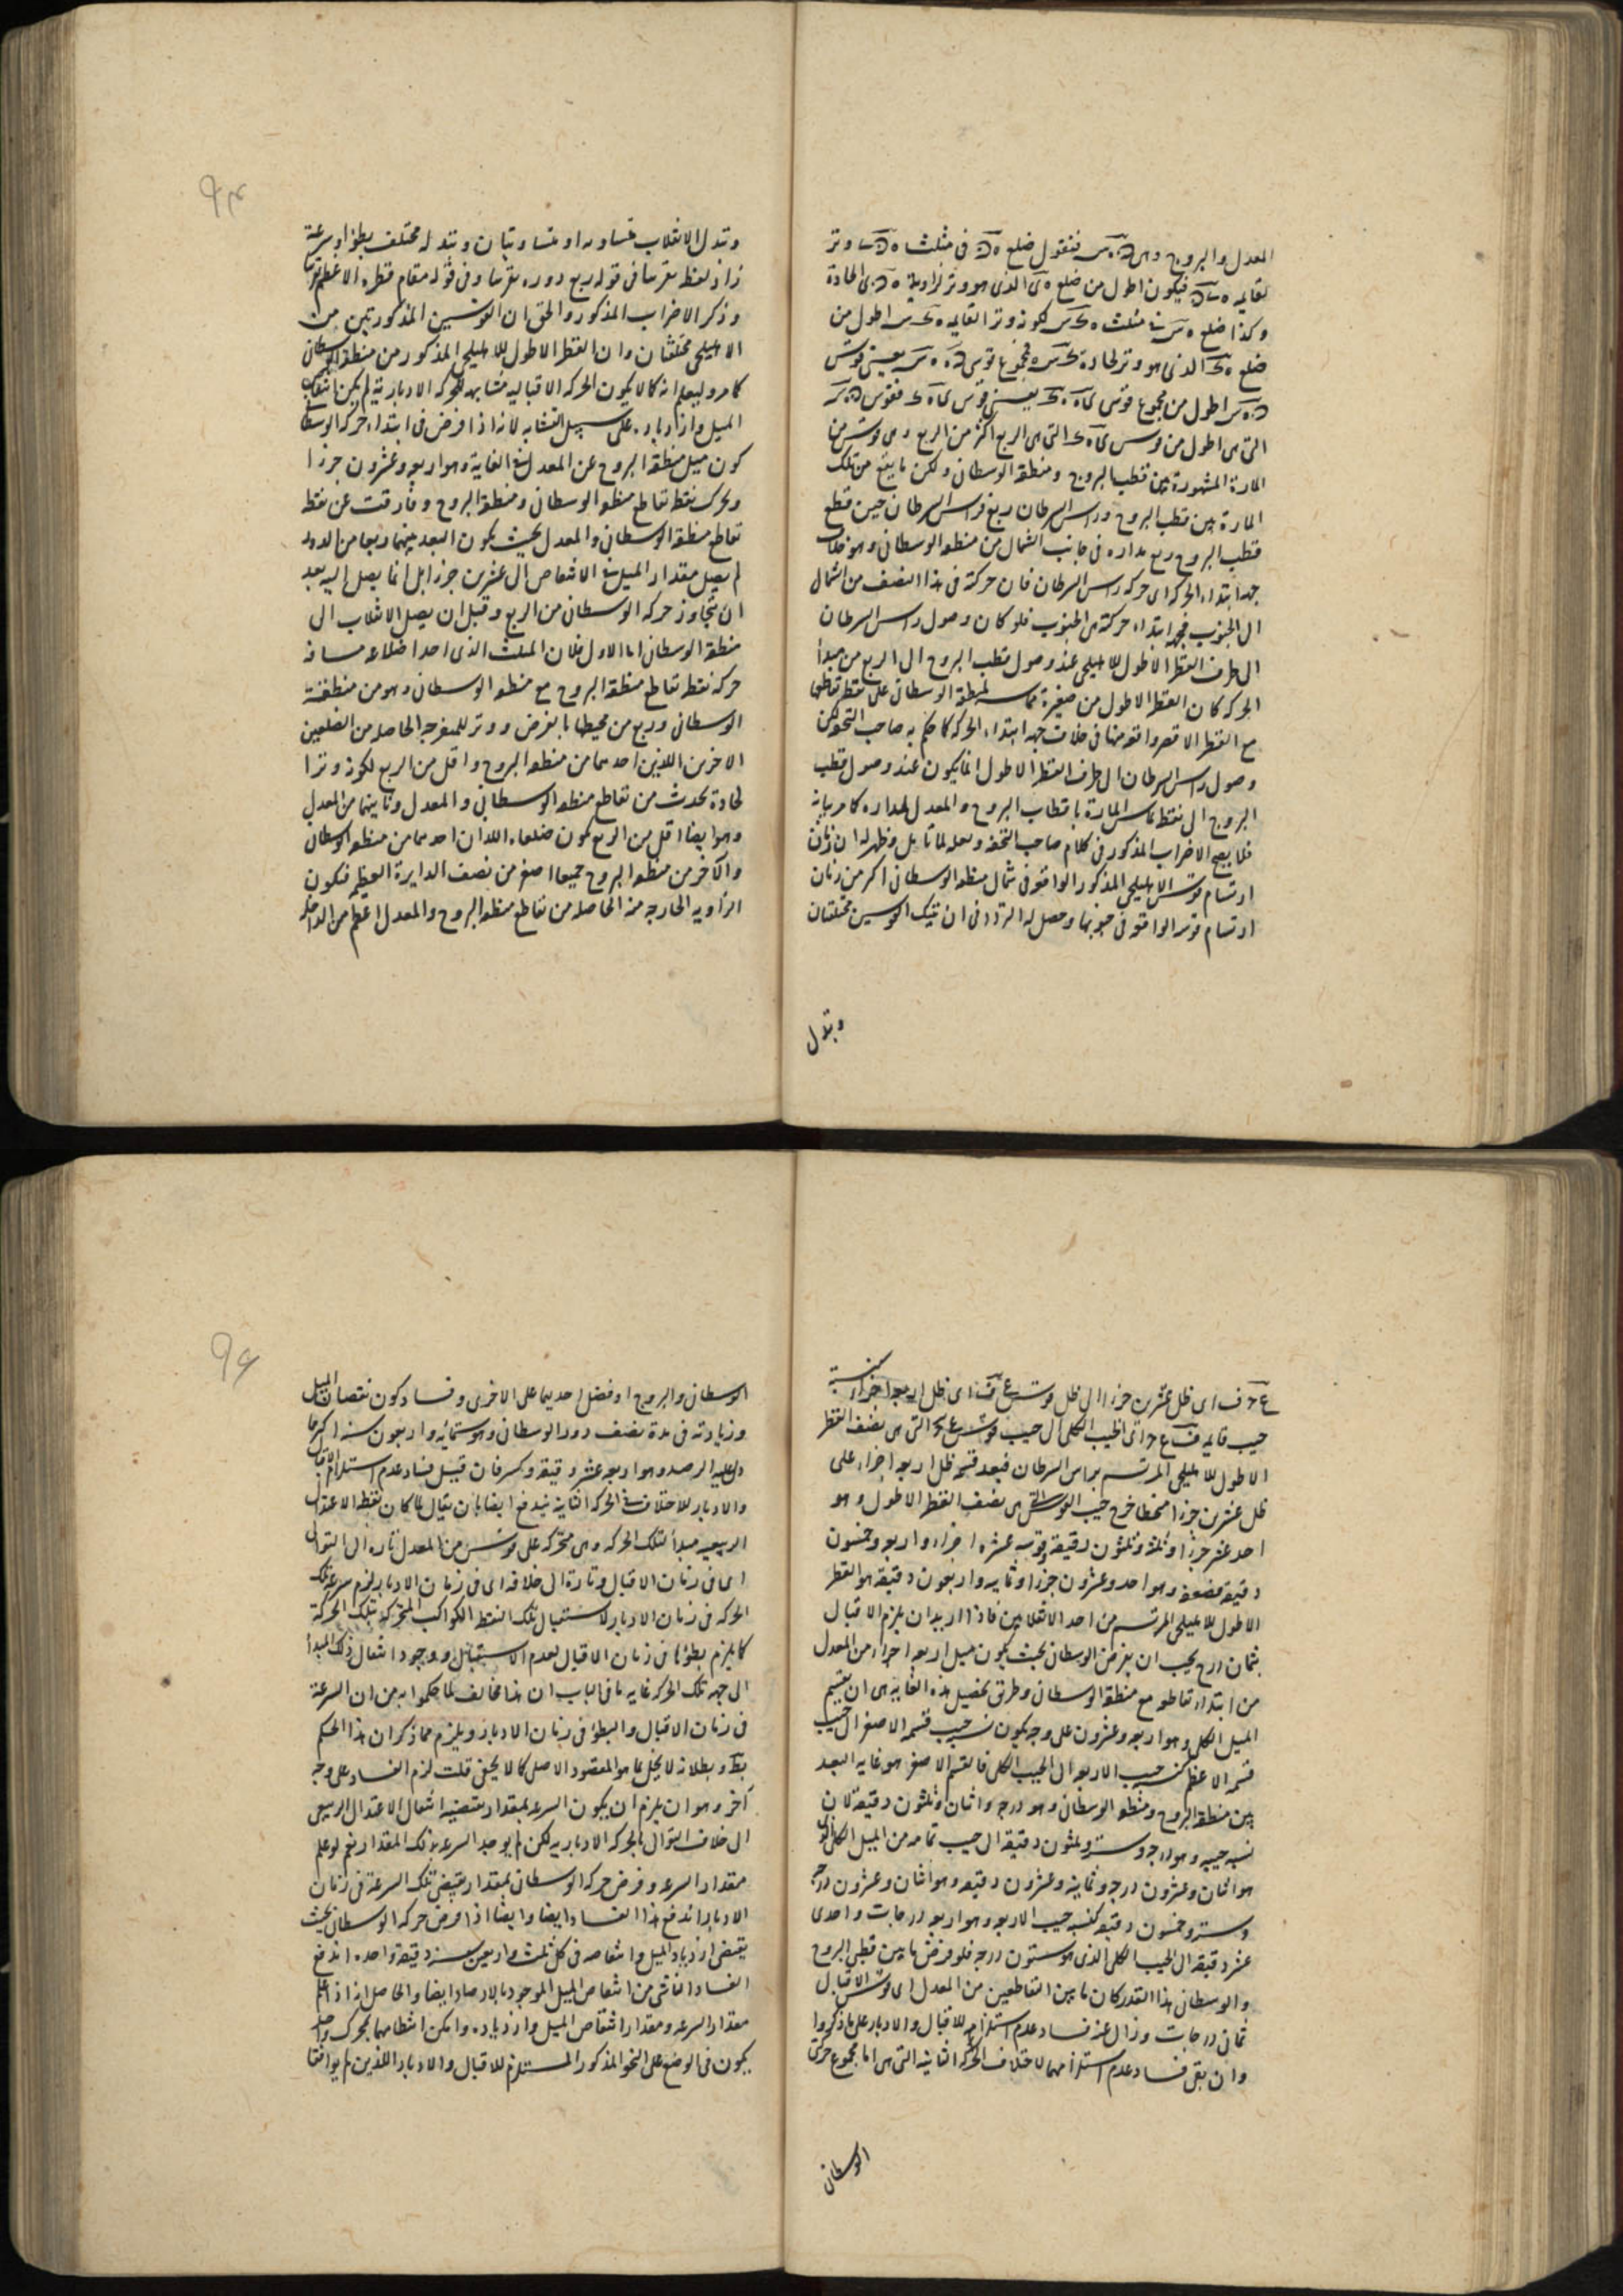 المعدل والبروج وهى فنقول ضلع فى مثلث وتر
فيكون اطول من ضلع الذى هو وتر لزاوية الحادة
وكذا ضلع مثلث لكونه وتر القايمه اطول من
ضلع الذى هو وتر لحادة فمجموع قوسى يعنى قوس
اطول من مجموع قوسى يعنى قوس فقوس
التى هى اطول من قوس التى هى الربع اكثر من الربع وهى قوس من
المارة المشهورة بين قطب البروج ومنطقة الوسطانى ولكن ما يقع من تلك
المارة بين قطب البروج وراس السرطان ربع فراس السرطان حين قطع
قطب البروج ربع مداره فى جانب الشمال من منطقة الوسطانى وهو خلاف
جهة ابتداء الحركة اى حركة راس السرطان فان حركته فى هذا النصف من الشمال
الى الجنوب فجهة ابتداء حركته هى الجنوب فلو كان وصول راس السرطان
الى طرف القطر الاطول للاهليلجى عند وصول قطب البروج الى الربع من مبدأ
الحركة كان القطر الاطول من صغيرة مماسة لمنطقة الوسطانى على نقطة تقاطعها
مع القطر الاقصر واقعة منها فى خلاف جهة ابتداء الحركة كما حكم به صاحب التحفة لكن
وصول راس السرطان الى طرف القطر الاطول انما يكون عند وصول قطب
البروج الى نقطة تماس المارة باقطاب البروج والمعدل لمداره كما مر بيانه
فلا يصح الاضراب المذكور فى كلام صاحب التحفة ولعله لما تامل وظهر له ان زمان
ارتسام قوس الاهليلجى المذكور الواقعة فى شمال منطقة الوسطانى اكثر من زمان
ارتسام قوسه الواقعة فى جنوبها وحصل له التردد فى ان تينك القوسين مختلفتان
وبدل
٩٣
وبدل الانقلاب متساويه او متساويتان وبدله مختلف بطؤا وسرعة
زاد لفظ تقريبا فى قوله ربع دوره تقريبا وفى قوله مقام قطره الاعظم تقريبا
وذكر الاضراب المذكور والحق ان القوسين المذكورتين من
الاهليلجى مختلفتان وان القطر الاطول للاهليلجى المذكور من منطقة الوسطانى
كما مر وليعلم انه كما لا يكون الحركة الاقباليه مشابهة للحركة الادبارية لم يكن انتقاص
الميل وازدياده على سبيل التشابه لانه اذا فرض فى ابتداء حركة الوسطانى
كون ميل منطقة البروج عن المعدل فى الغاية وهو اربعة وعشرون جزءا
وتحرك نقطة تقاطع منطقة الوسطانى ومنطقة البروج وفارقت عن نقطة
تقاطع منطقة الوسطانى والمعدل بحيث يكون البعد بينهما ربعا من الدور
لم يصل مقدار الميل فى الانتقاص الى عشرين جزءا بل انما يصل اليه بعد
ان يتجاوز حركة الوسطانى من الربع وقبل ان يصل الانقلاب الى
منطقة الوسطانى اما الاول فلان المثلث الذى احد اضلاعه مسافة
حركة نقطة تقاطع منطقة البروج مع منطقة الوسطانى وهو من منطقة
الوسطانى وربع من محيطها بالفرض ووتر للمنفرجه الحاصله من الضلعين
الاخرين اللذين احدهما من منطقة البروج واقل من الربع لكونه وترا
لحادة تحدث من تقاطع منطقة الوسطانى والمعدل وثانيهما من المعدل
وهو ايضا اقل من الربع يكون ضلعاه اللذان احدهما من منطقة الوسطانى
والآخر من منطقة البروج جميعا اصغر من نصف الدايرة العظيمه فيكون
الزاويه الخارجه منه الحاصله من تقاطع منطقة البروج والمعدل اعظم من الداخله
اى ظل عشرين جزءا الى ظل قوس اى ظل اربعة اجزاء كنسبة
جيب قايمه اى الجيب الكلى الى جيب قوس التى هى نصف القطر
الاطول للاهليلجى المرتسم براس السرطان فبعد قسمة ظل اربعة اجزاء على
ظل عشرين جزءا منحطا خرج جيب القوس التى هى نصف القطر الاطول وهو
احد عشر جزءا وثلثة وثلثون دقيقة وقوسه عشرة اجزاء واربعة وخمسون
دقيقة فضعفه وهو احد وعشرون جزءا وثمانيه واربعون دقيقة هو القطر
الاطول للاهليلجى المرتسم من احد الانقلابين فاذا اريد ان يلزم الاقبال
بثمان درج يجب ان يفرض الوسطانى بحيث يكون ميل اربعة اجزاء من المعدل
من ابتداء تقاطعه مع منطقة الوسطانى وطريق تحصيل هذه الغايه هى ان يقسم
الميل الكلى وهو اربعه وعشرون على وجه يكون نسبة جيب قسمه الاصغر الى جيب
قسمه الاعظم كنسبة جيب الاربعة الى الجيب الكلى فالقسم الاصغر هو غاية البعد
بين منطقة البروج ومنطقة الوسطانى وهو درجه واثنان وثلثون دقيقه لان
نسبة جيبه وهو درجه وستة وثلثون دقيقة الى جيب تمامه من الميل الكلى الذى
هو اثنان وعشرون درجة وثمانية وعشرون دقيقه وهو اثنان وعشرون درجة
وستة وخمسون دقيقه كنسبة جيب الاربعه وهو اربعه درجات واحدى
عشر دقيقه الى الجيب الكلى الذى هو ستون درجة فلو فرض ما بين قطبى البروج
والوسطانى هذا القدر كان ما بين التقاطعين من المعدل اى قوس الاقبال
ثمان درجات وزال عنه فساد عدم استلزامه للاقبال والادبار على ما ذكروا
وان بقى فساد عدم استلزامهما لاختلاف الحركة الثانية التى هى اما مجموع حركتى
الوسطانى
٩٤
الوسطانى والبروج او فضل احديهما على الاخرى وفساد كون نقصان الميل
وزيادته فى مدة نصف دور الوسطانى وهو ستمائه واربعون سنه اكثر مما
دل عليه الرصد وهو اربعه عشر دقيقة وكسر فان قيل فساد عدم استلزام الاقبال
والادبار للاختلاف فى الحركة الثانية يندفع ايضا بان يقال لما كان نقطة الاعتدال
الربيعيه مبدأ لتلك الحركة وهى متحركة على قوس من المعدل تارة الى التوالى
اى فى زمان الاقبال وتارة الى خلافه اى فى زمان الادبار يلزم سرعة تلك
الحركة فى زمان الادبار لاستقبال تلك النقطة الكواكب المتحركة بتلك الحركة
كما يلزم بطؤها فى زمان الاقبال لعدم الاستقبال ووجود انتقال ذلك المبدأ
الى جهة تلك الحركة غايه ما فى الباب ان هذا مخالف لما حكموا به من ان السرعة
فى زمان الاقبال والبطؤ فى زمان الادبار ويلزم مما ذكر ان هذا الحكم
بط وبطلانه لا يخل بما هو المقصود الاصلى كما لا يخفى قلت لزم الفساد على وجه
آخر وهو ان يلزم ان يكون السرعه بمقدار يقتضيه انتقال الاعتدال الربيعى
الى خلاف التوالى بالحركة الادباريه لكن لم يوجد السرعه بذلك المقدار نعم لو علم
مقدار السرعه وفرض حركة الوسطانى بمقدار يقتضى تلك السرعة فى زمان
الادبار اندفع هذا الفساد ايضا وايضا اذا فرض حركة الوسطانى بحيث
يقتضى ازدياد الميل وانتقاصه فى كل ثلث واربعين سنة دقيقة واحده اندفع
الفساد الناشى من انتقاص الميل الموجود بالارصاد ايضا والحاصل انه اذا علم
مقدار السرعه ومقدار انتقاص الميل وازدياده وامكن انتظامهما بمحرك واحد
يكون فى الوضع على النحو المذكور المستلزم للاقبال والادبار اللذين لم يوافقا